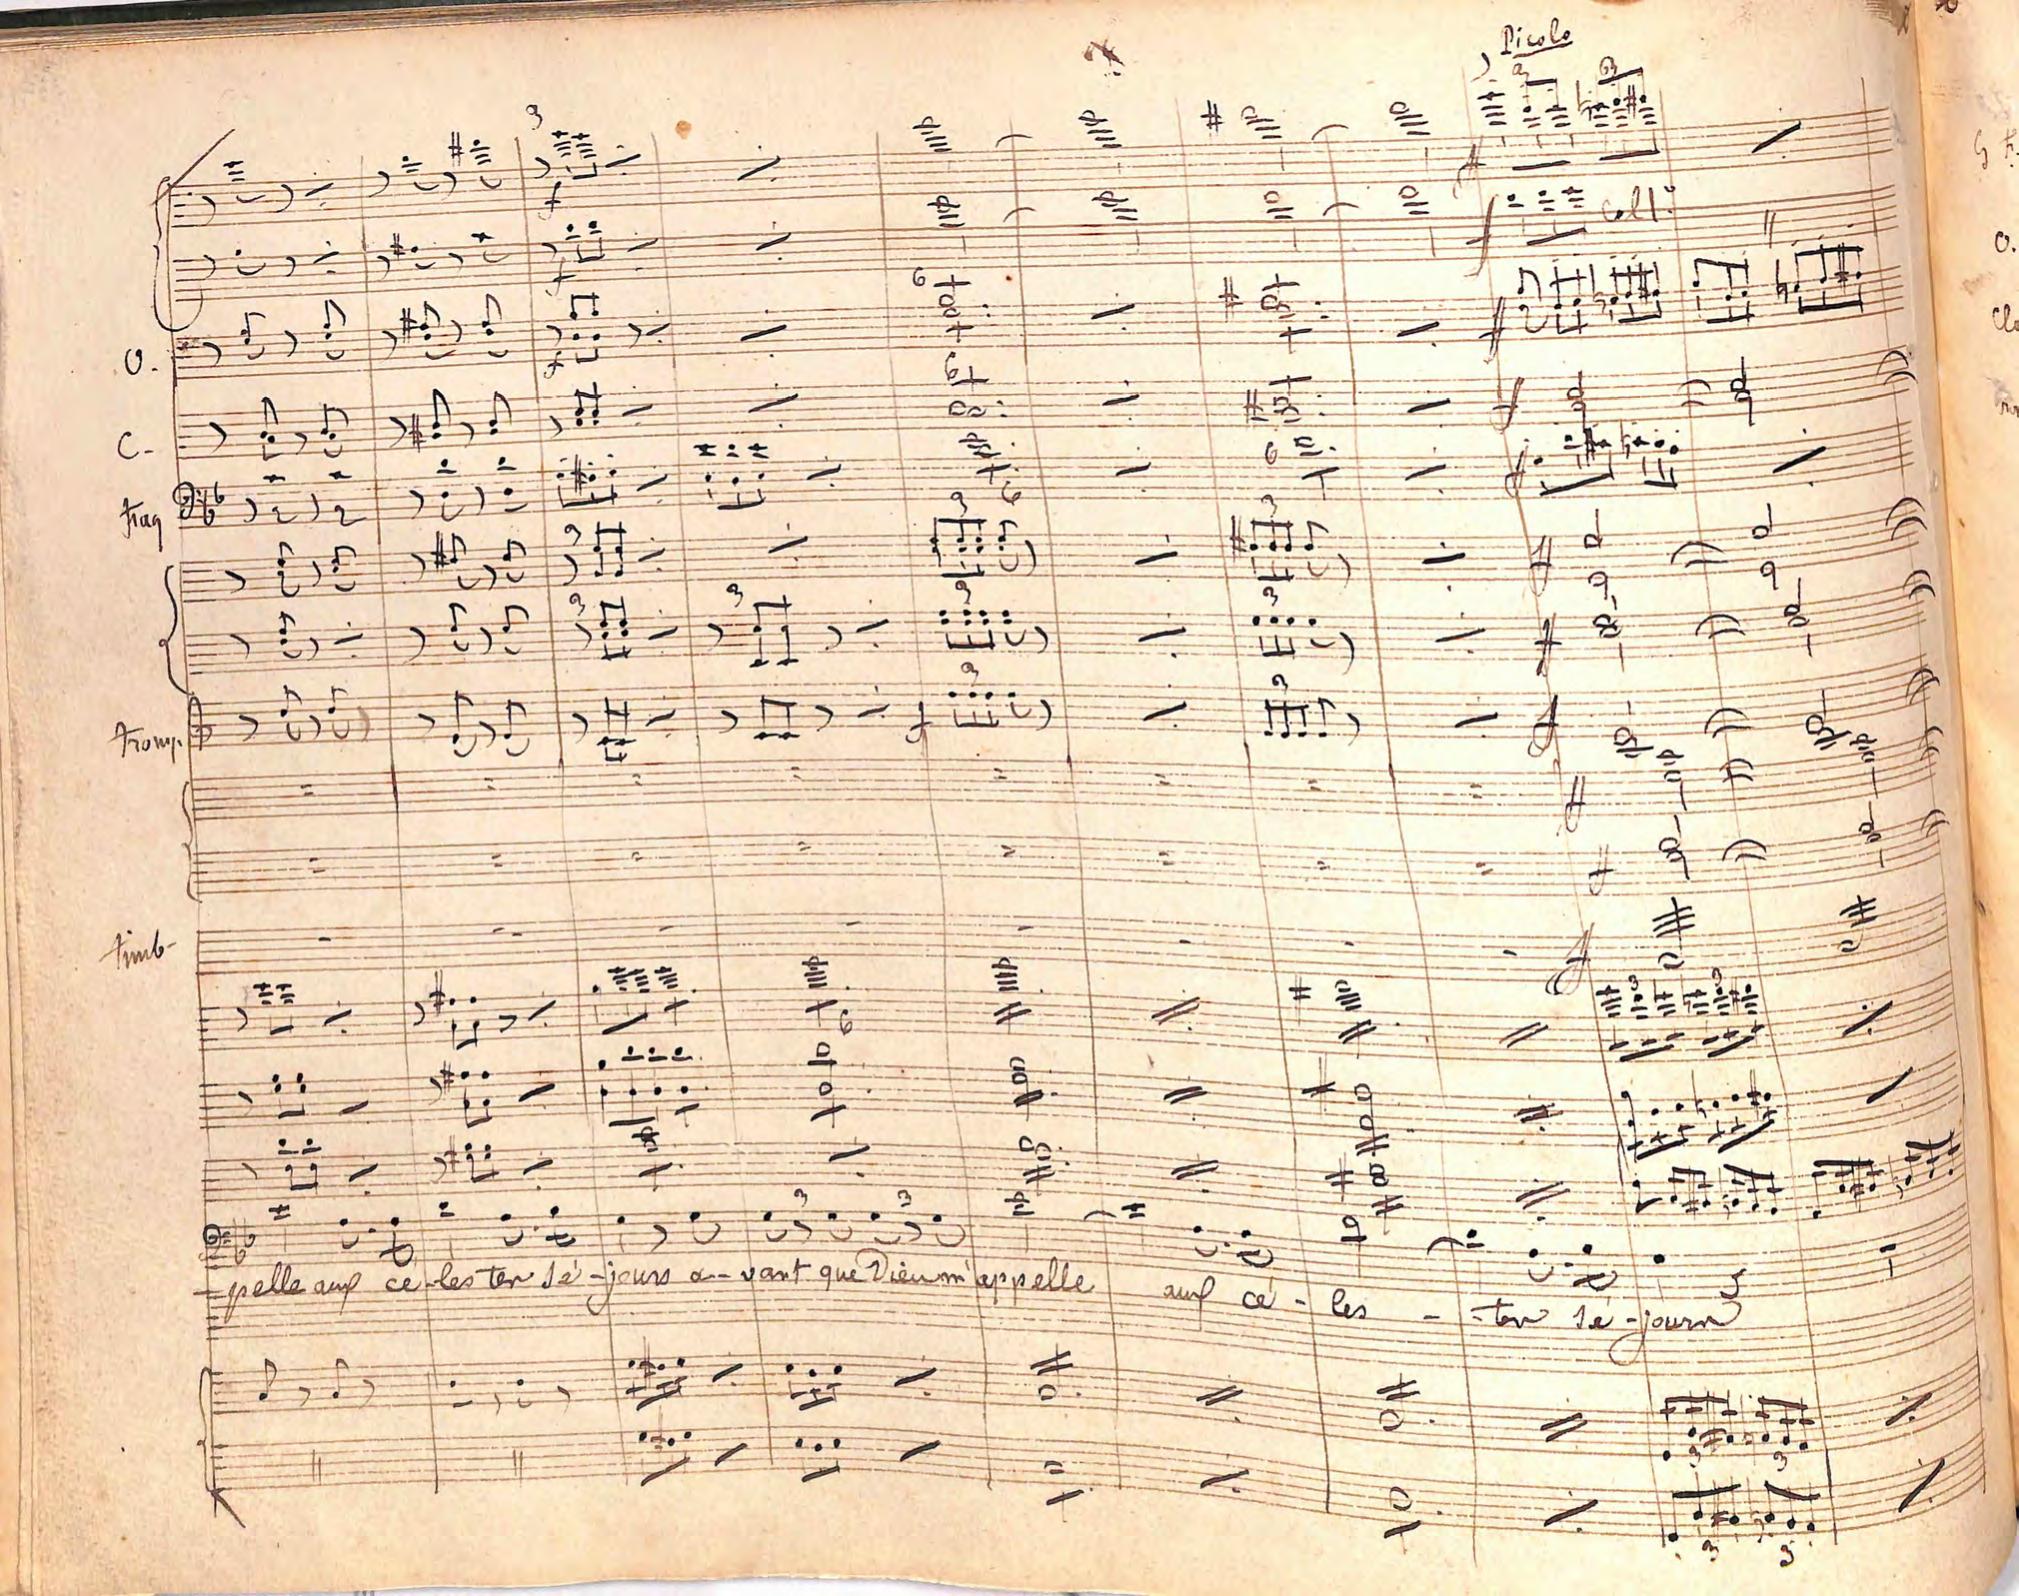 Picolo
col 1º
O.
C-
Fag
Tromp
Timb-
pelle aux cé-lestes sé-jours a-vant que Dieu m'appelle aux cé-les--tes sé-jours